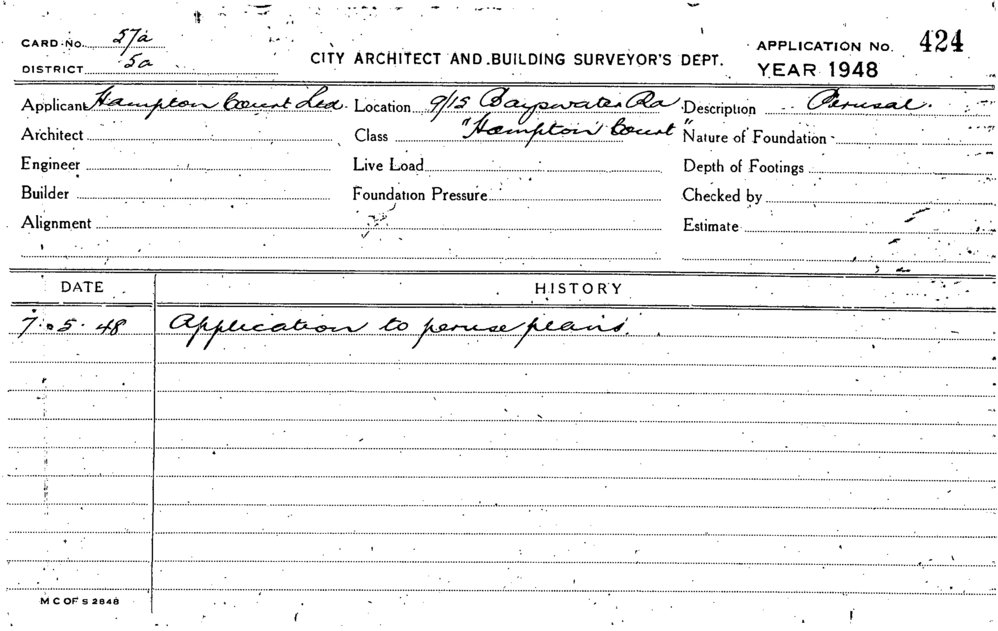 CARD NO. 57a
DISTRICT 5a
CITY ARCHITECT AND BUILDING SURVEYOR'S DEPT.
APPLICATION NO. 424
YEAR 1948
Applicant Hampton Court Ltd. Location 9/15 Bayswater Rd Description Perusal.
Architect Class "Hampton Court" Nature of Foundation
Engineer Live Load Depth of Footings
Builder Foundation Pressure Checked by
Alignment Estimate
DATE HISTORY
7.5.48 Application to peruse plans.
M C OF S 2848